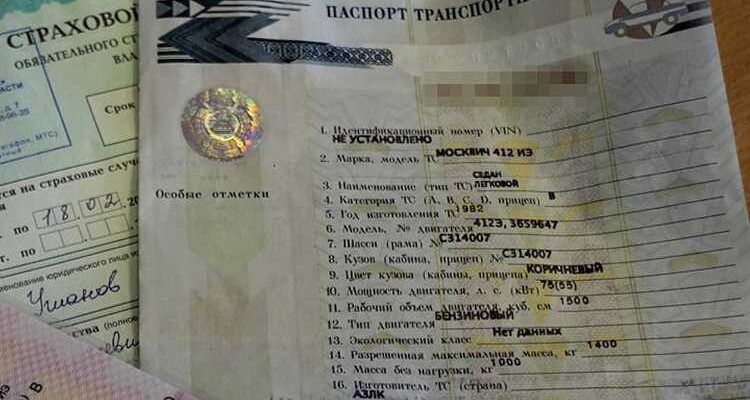 СТРАХОВОЙ
ОБЯЗАТЕЛЬНОГО
ВЛА
АСТИ
Срок
МТС)
на страховые случ
по 18.02.
т. по
менование юридического лица и
Усманов
ства (полно
ПАСПОРТ ТРАНСПОРТН
Особые отметки
1. Идентификационный номер (VIN)
НЕ УСТАНОВЛЕНО
2. Марка, модель ТС МОСКВИЧ 412 ИЭ
СЕДАН
3. Наименование (тип ТС) ЛЕГКОВОЙ
4. Категория ТС (A, B, C, D, прицеп) B
5. Год изготовления ТС 1982
6. Модель, № двигателя 412Э, 3659647
7. Шасси (рама) № С314007
8. Кузов (кабина, прицеп) № С314007
9. Цвет кузова (кабины, прицепа) КОРИЧНЕВЫЙ
10. Мощность двигателя, л. с. (кВт) 75(55)
11. Рабочий объем двигателя, куб. см 1500
12. Тип двигателя БЕНЗИНОВЫЙ
13. Экологический класс Нет данных
14. Разрешенная максимальная масса, кг 1400
15. Масса без нагрузки, кг 1000
16. Изготовитель ТС (страна)
АЗЛК